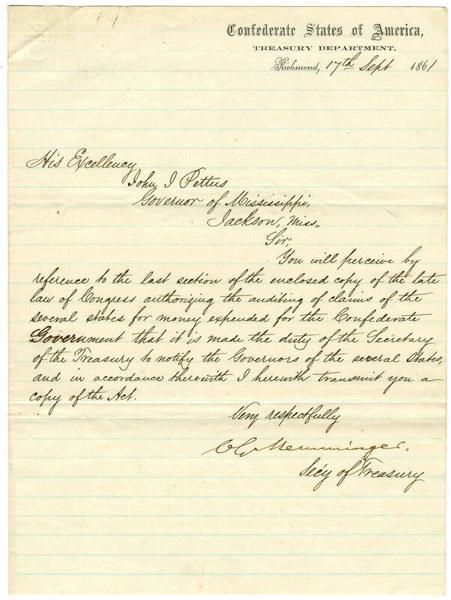 Confederate States of America,
TREASURY DEPARTMENT,
Richmond, 17th Sept 1861
His Excellency
John J Pettus
Governor of Mississippi,
Jackson, Miss.
Sir,
You will perceive by
reference to the last section of the enclosed copy of the late
law of Congress authorizing the auditing of claims of the
several states for money expended for the Confederate
Government that it is made the duty of the Secretary
of the Treasury to notify the Governors of the several States,
and in accordance therewith I herewith transmit you a
copy of the Act.
Very respectfully
C G Memminger.
Sec'y of Treasury